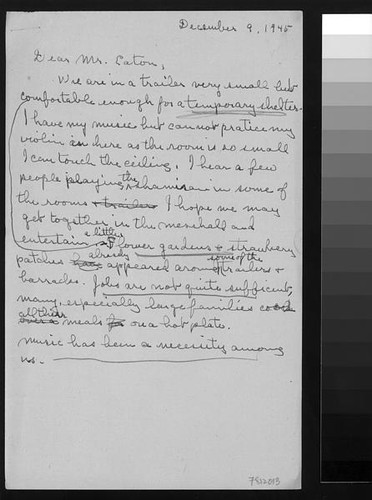 December 9, 1945
Dear Mr. Eaton,
We are in a trailer very small but
comfortable enough for a temporary shelter.
I have my music but cannot pratice my
violin in here as the room is so small
I can touch the ceiling. I hear a few
people playing the shamisan in some of
the rooms + trailers I hope we may
get together in the messhall and
entertain a little. Flower gardens + strawberry
patches have already appeared around some of the trailers +
barracks. Jobs are not quite sufficent,
many, especially large families cook
all their meals on a hot plate.
Music has been a necessity among
us.